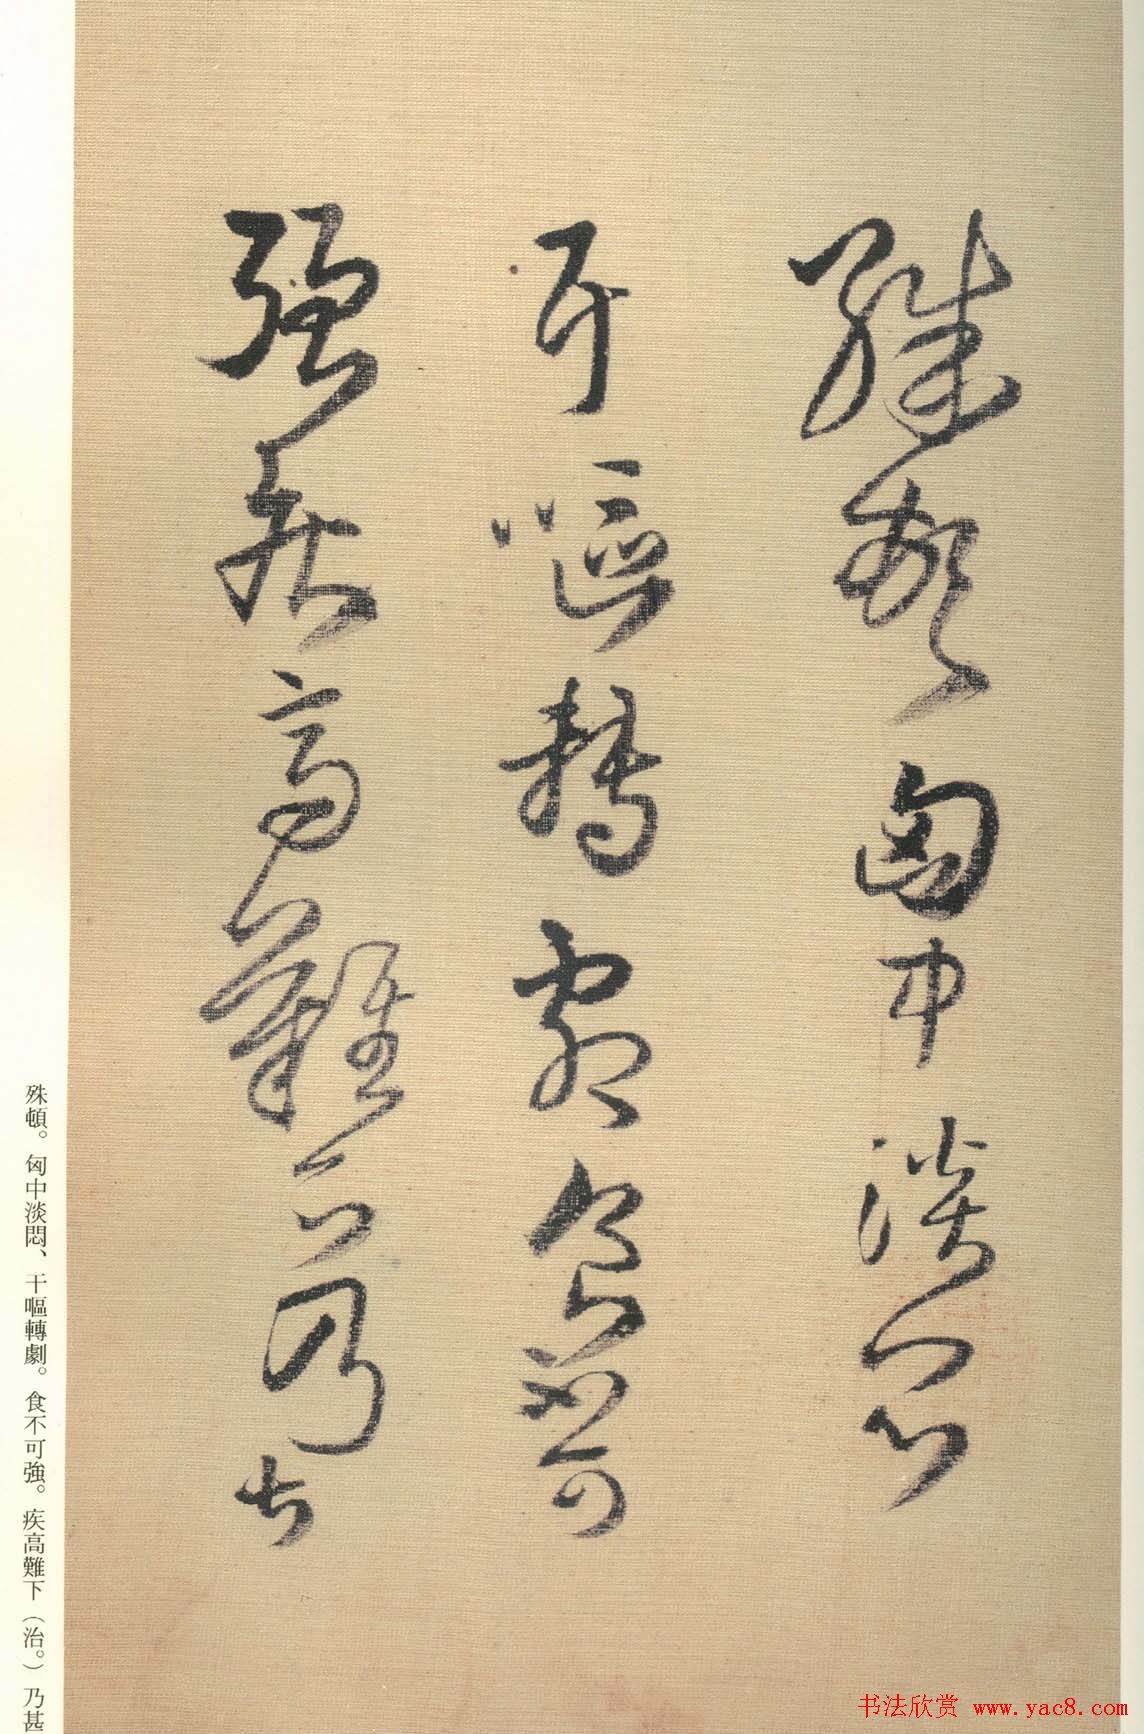 殊頓匈中淡悶
干嘔轉劇食不可
強疾高難下乃甚
殊頓。匈中淡悶、干嘔轉劇。食不可強。疾高難下（治。）乃甚
书法欣赏 www.yac8.com